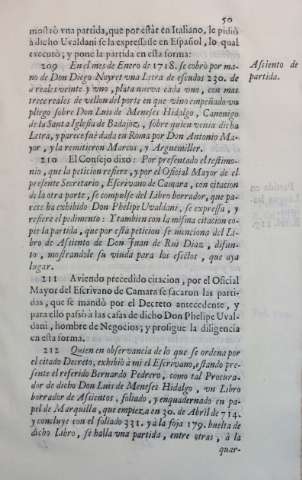 50
mostrò vna partida, que por estàr en Italiano, se pidiò
à dicho Uvaldani se la expressasse en Español, lo qual
executò; y pone la partida en esta forma:
209 En el mes de Enero de 1718. se cobrò por ma-
no de Don Diego Noyret vna Letra de escudos 230. de
à reales veinte y vno, plata nueva cada vno, con mas
trece reales de vellon del porte en que vino empeñado vn
pliego sobre Don Luis de Meneses Hidalgo, Canonigo
de la Santa Iglesia de Badajoz, sobre quien venia dicha
Letra, y parece fuè dada en Roma por Don Antonio Ma-
yor, y la remitieron Marcos, y Arguemiller.
Assiento de
partida.
210 El Consejo dixo: Por presentado el testimo-
nio, que la peticion refiere, y por el Oficial Mayor de el
presente Secretario, Escrivano de Camara, con citacion
de la otra parte, se compulse del Libro borrador, que pa-
rece ha exhibido Don Phelipe Uvaldani, se expressa, y
refiere el pedimento: Y tambien con la misma citacion co-
pie la partida, que por esta peticion se menciona del Li-
bro de Assiento de Don Juan de Rus Diaz, difun-
to, mostrandole su viuda para los efectos, que aya
lugar.
211 Aviendo precedido citacion, por el Oficial
Mayor del Escrivano de Camara se sacaron las parti-
das, que se mandò por el Decreto antecedente, y
para ello passò à las casas de dicho Don Phelipe Uval-
dani, hombre de Negocios; y prosigue la diligencia
en esta forma.
212 Quien en observancia de lo que se ordena por
el citado Decreto, exhibiò à mi el Escrivano, estando pre-
sente el referido Bernardo Pedrero, como tal Procura-
dor de dicho Don Luis de Meneses Hidalgo, vn Libro
borrador de Assientos, foliado, y enquadernado en pa-
pel de Marquilla, que empieza en 30. de Abril de 714.
y concluye con el foliado 331. y à la foja 179. buelta de
dicho Libro, se halla vna partida, entre otras, à la
quar-